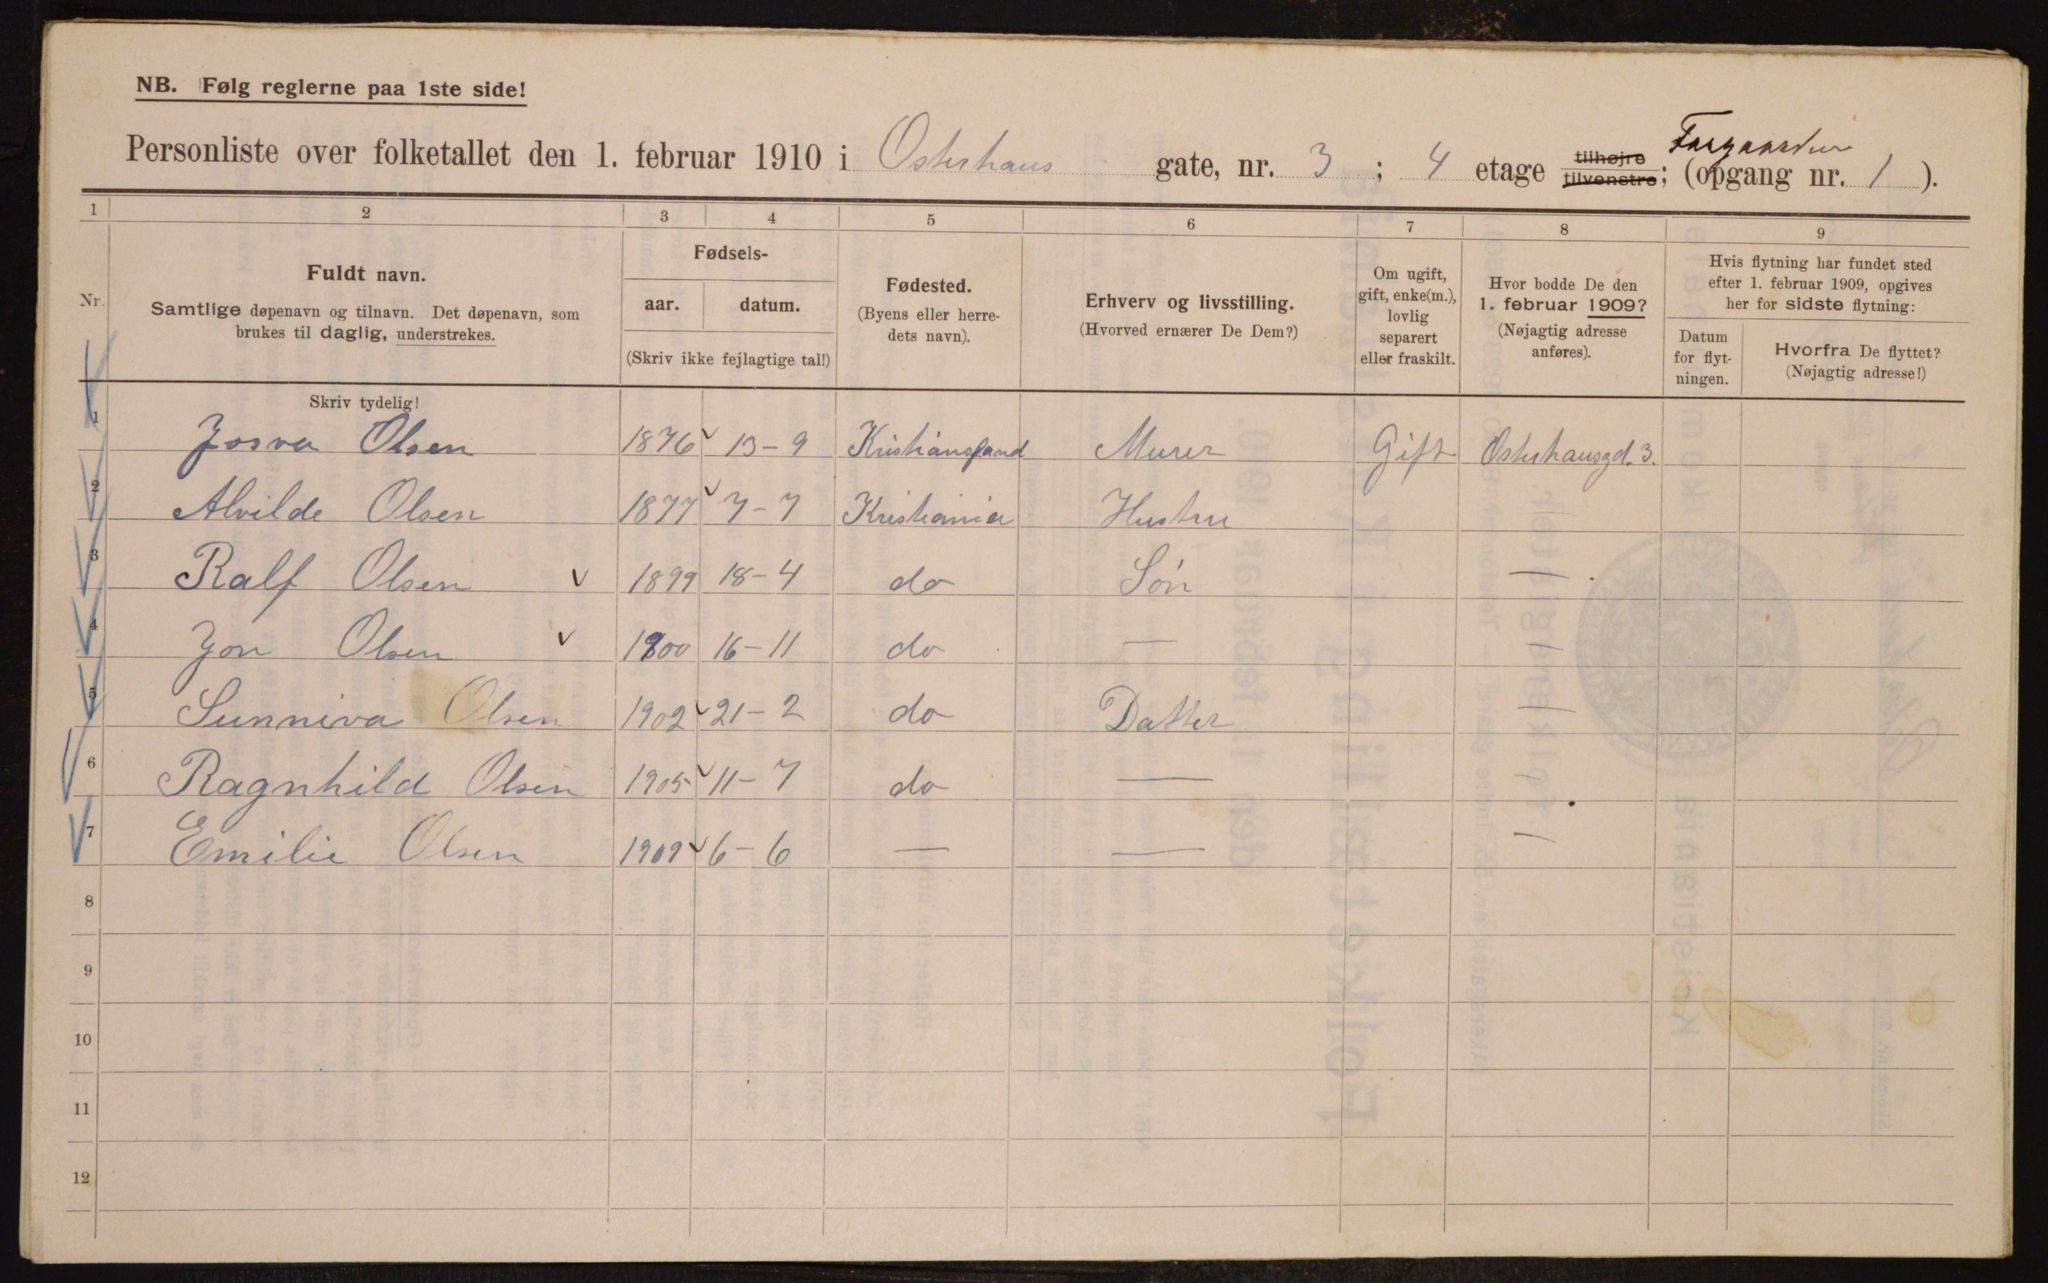 NB. Følg reglerne paa 1ste side!
Personliste over folketallet den 1. februar 1910 i Osterhaus gate, nr. 3 ; 4 etage tilhøjre tilvenstre; (opgang nr. 1 ).
1 2 3 4 5 6 7 8 9
Nr.
Fuldt navn.
Samtlige døpenavn og tilnavn. Det døpenavn, som
brukes til daglig, understrekes.
Fødsels-
aar. datum.
(Skriv ikke fejlagtige tal!)
Fødested.
(Byens eller herre-
dets navn).
Erhverv og livsstilling.
(Hvorved ernærer De Dem?)
Om ugift,
gift, enke(m.),
lovlig
separert
eller fraskilt.
Hvor bodde De den
1. februar 1909?
(Nøjagtig adresse
anføres).
Hvis flytning har fundet sted
efter 1. februar 1909, opgives
her for sidste flytning:
Datum
for flyt-
ningen.
Hvorfra De flyttet?
(Nøjagtig adresse!)
Skriv tydelig!
1 Josva Olsen 1876 13-9 Kristiansand Murer Gift Osterhausgd. 3.
2 Alvilde Olsen 1877 7-7 Kristiania Hustru
3 Ralf Olsen 1899 18-4 do Søn —
4 Jon Olsen 1900 16-11 do — —
5 Sunniva Olsen 1902 21-2 do Datter —
6 Ragnhild Olsen 1905 11-7 do — —
7 Emilie Olsen 1909 6-6 — — —
8
9
10
11
12